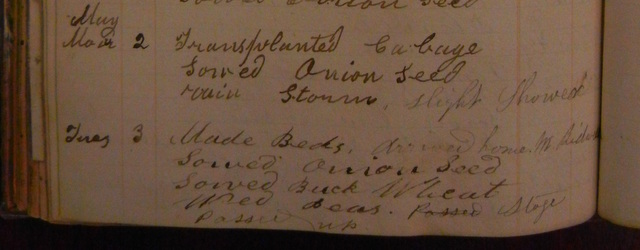 Sowed Onion Seed
May
Mon 2 Transplanted Cabage
Sowed Onion Seed
rain Storm, slight Shower
Tues 3 Made Beds. arrived home. M.
Sowed Onion Seed
Sowed Buck Wheat
Wed Peas. Passed Stage
Passed up